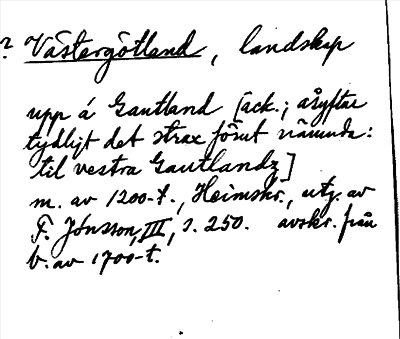 ? Västergötland, landskap
upp á Gautland [ack.; åsyftar
tydligt det strax förut nämnda:
til vestra Gautlandz]
m. av 1200-t., Heimskr., utg. av
F. Jónsson, III, s. 250. avskr. från
b. av 1700-t.